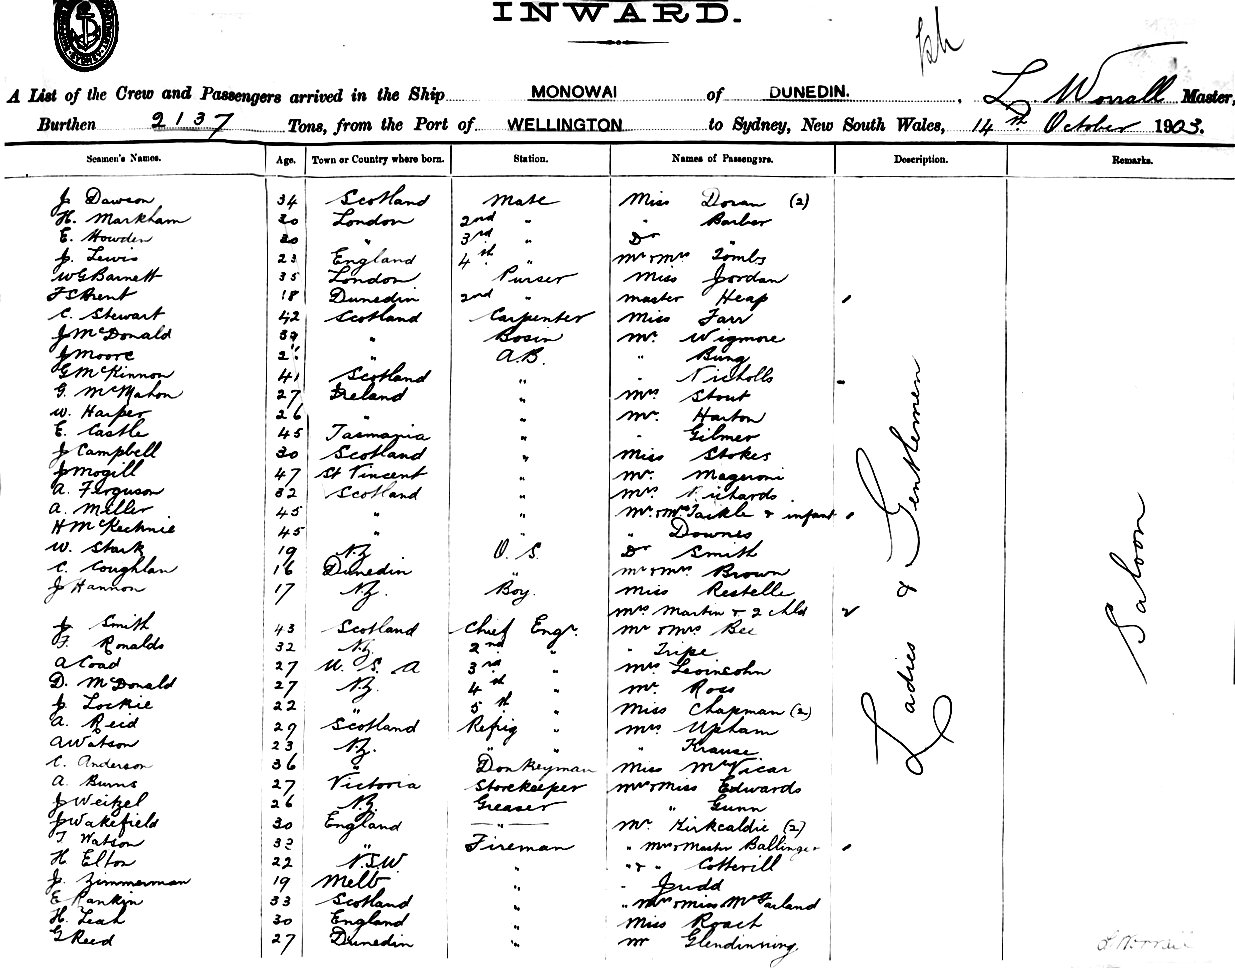 INWARD.
A List of the Crew and Passengers arrived in the Ship MONOWAI of DUNEDIN. L Worrall Master,
Burthen 2137 Tons, from the Port of WELLINGTON to Sydney, New South Wales, 14th October 1903.
Seamen's Names. Age. Town or Country where born. Station. Names of Passengers. Description. Remarks.
J Dawson 34 Scotland Mate Miss Doran (2)
H. Markham 30 London 2nd " " Barber
E. Howden 20 " 3rd " Dr "
J. Lewis 23 England 4th " Mr & Mrs Tombs
W G Barnett 35 London Purser Miss Jordan
F S Brent 18 Dunedin 2nd " Master Heap
C. Stewart 42 Scotland Carpenter Miss Farr
J McDonald " Bosin Mr. Wigmore
J Moore " A.B. " Bung
G McKinnon 41 Scotland " " Nicholls
G. McMahon 27 Ireland " Mrs Stout
W. Harper 26 " " Mr. Harton
E. Castle 45 Tasmania " " Gilmer
J Campbell 30 Scotland " Miss Stokes
J Mogill 47 St Vincent " Mr. Mageroni
A. Ferguson 32 Scotland " Mrs Richards
A. Miller 45 " " Mr & Mrs Tackle & infant
H McKechnie 45 " " " Downes
W. Stark 19 N.Z O.S. Dr Smith
C. Coughlan 16 Dunedin " Mr & Mrs Brown
J Hannon 17 N.Z. Boy. Miss Restelle
Mrs Martin & 2 chld
J Smith 43 Scotland Chief Engr. Mr & Mrs Bee
F. Ronalds 32 N.Z. 2nd " " Tripe
A Coad 27 U.S.A 3rd " Mrs Levinsohn
D. McDonald 27 N.Z. 4th " Mr. Ross
J. Lockie 22 " 5th " Miss Chapman (2)
A. Reid 29 Scotland Refrig " Mrs Upham
A Watson 23 N.Z. " " " Krause
C. Anderson 36 " Donkeyman Miss McVicar
A. Burns 27 Victoria Storekeeper Mr & Miss Edwards
J Weitzel 26 N.Z. Greaser " Gunn
J Wakefield 30 England " Mr. Kirkcaldie (2)
T Watson 32 " Fireman " Mrs & Master Ballinger
H Elton 22 N.S.W. " " & " Cotterill
J. Zimmerman 19 Melb " " Judd
E Rankin 33 Scotland " " Mrs & Miss McFarland
H. Leah 30 England " Miss Roach
G Reed 27 Dunedin " Mr Glendinning
Ladies & Gentlemen
Saloon
L Worrall